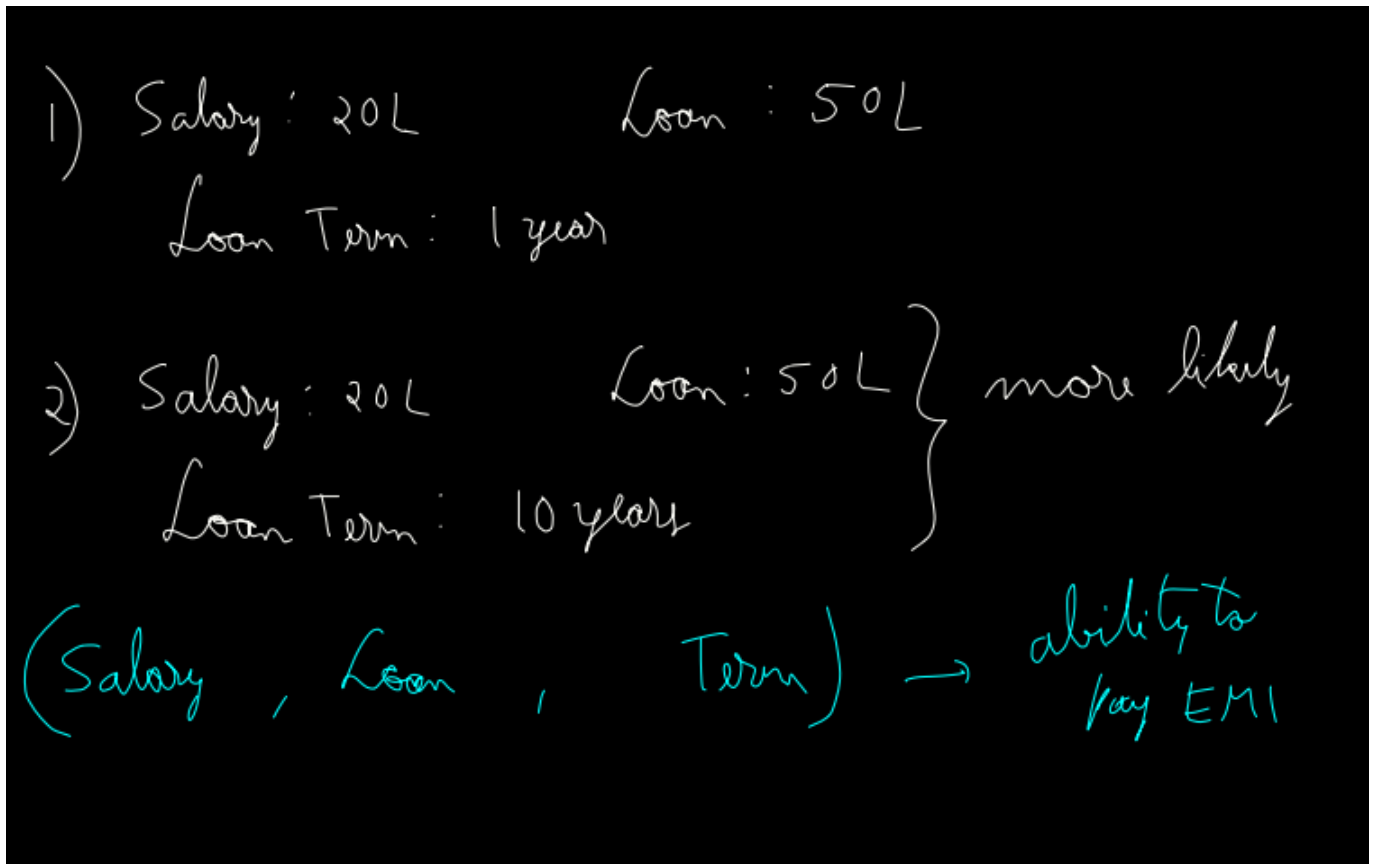 1) Salary : 20L Loan : 50L
Loan Term : 1 year
2) Salary : 20L Loan : 50L } more likely
Loan Term : 10 years
(Salary , Loan , Term) → ability to
pay EMI